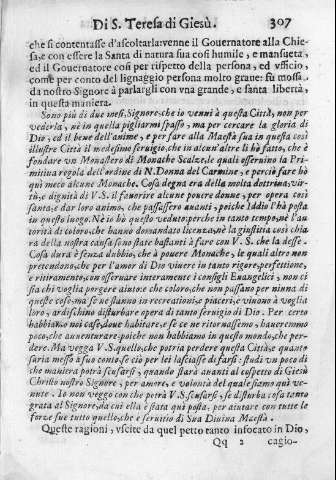 Di S. Teresa di Giesù. 307
che si contentasse d'ascoltarla: venne il Gouernatore alla Chie-
sa, e con essere la Santa di natura sua così humile, e mansueta,
ed il Gouernatore così per rispetto della persona, ed vfficio,
come per conto del lignaggio persona molto graue: fù mossa
da nostro Signore à parlargli con vna grande, e santa libertà,
in questa maniera.
Sono più di due mesi, Signore, che io venni à questa Città, non per
vederla, nè in quella pigliarmi spasso, ma per cercare la gloria di
Dio, ed il bene dell'anime, e per fare alla Maestà sua in questa così
illustre Città il medesimo seruigio, che in alcun'altre li hò fatto, che è
fondare vn Monastero di Monache Scalze, le quali osseruino la Pri-
mitiua regola dell'ordine di N. Donna del Carmine, e perciò fare hò
quì meco alcune Monache. Cosa degna era della molta dottrina, vir-
tù, e dignità di V. S. il fauorire alcune pouere donne, per opera così
santa, e dar loro animo, che passassero auanti, poiche Iddio l'hà posta
in questo luogo. Nè io hò questo veduto: perche in tanto tempo, nè l'au-
torità di coloro, che hanno domandato licenza, nè la giustitia così chia
ra della nostra causa sono state bastanti à fare con V. S. che la desse.
Cosa dura è senza dubbio, che à pouere Monache, le quali altro non
pretendono, che per l'amor di Dio viuere in tanto rigore, perfettione,
e ritiramento, con osseruare interamente i consigli Euangelici, non ci
sia chi voglia porgere aiuto: e che coloro, che non passano per niuna di
queste cose, ma se ne stanno in recreationi, e piaceri, e viuono à voglia
loro, ardischino disturbare opera di tanto seruigio di Dio. Per certo
habbiamo noi case, doue habitare, e se ce ne ritornassemo, haueremmo
poco, che auuenturare, poiche non habbiamo in questo mondo, che per-
dere. Ma vegga V. S. quello, che potria perdere questa Città, e quanto
saria messo à suo conto, se ciò per lei lasciasse di farsi: studi vn poco di
che maniera potrà scusarsi, quando starà auanti al cospetto di Giesù
Christo nostro Signore, per amore, e volontà del quale siamo quì ve-
nute. Io non veggo con che potrà V. S. scusarsi, se disturba cosa tanto
grata al Signore, da cui ella è stata quì posta, per aiutare con tutte le
forze sue tutto quello, che è seruitio di Sua Diuina Maestà.
Queste ragioni, vscite da quel petto tanto infocato in Dio,
Qq 2 cagio-